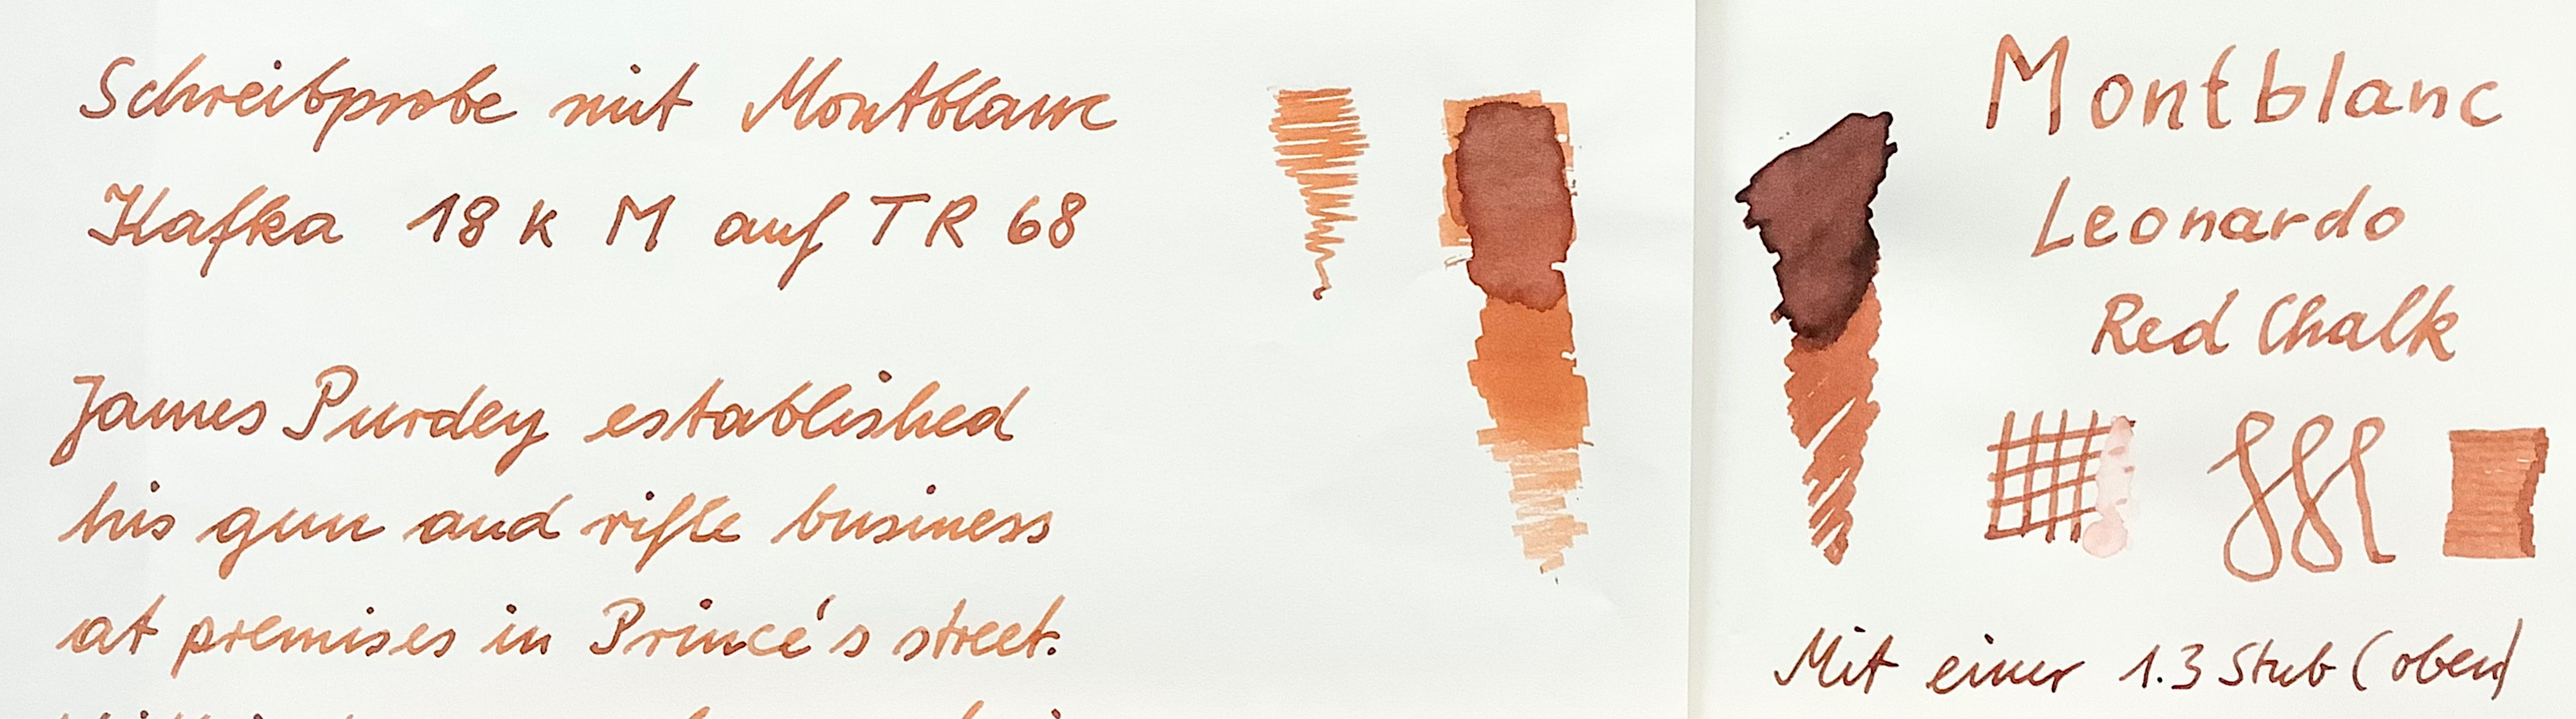 Schreibprobe mit Montblanc
Kafka 18 K M auf TR 68
James Purdey established
his gun and rifle business
at premises in Prince's street.
Montblanc
Leonardo
Red Chalk
Mit einer 1.3 Stub (oben)